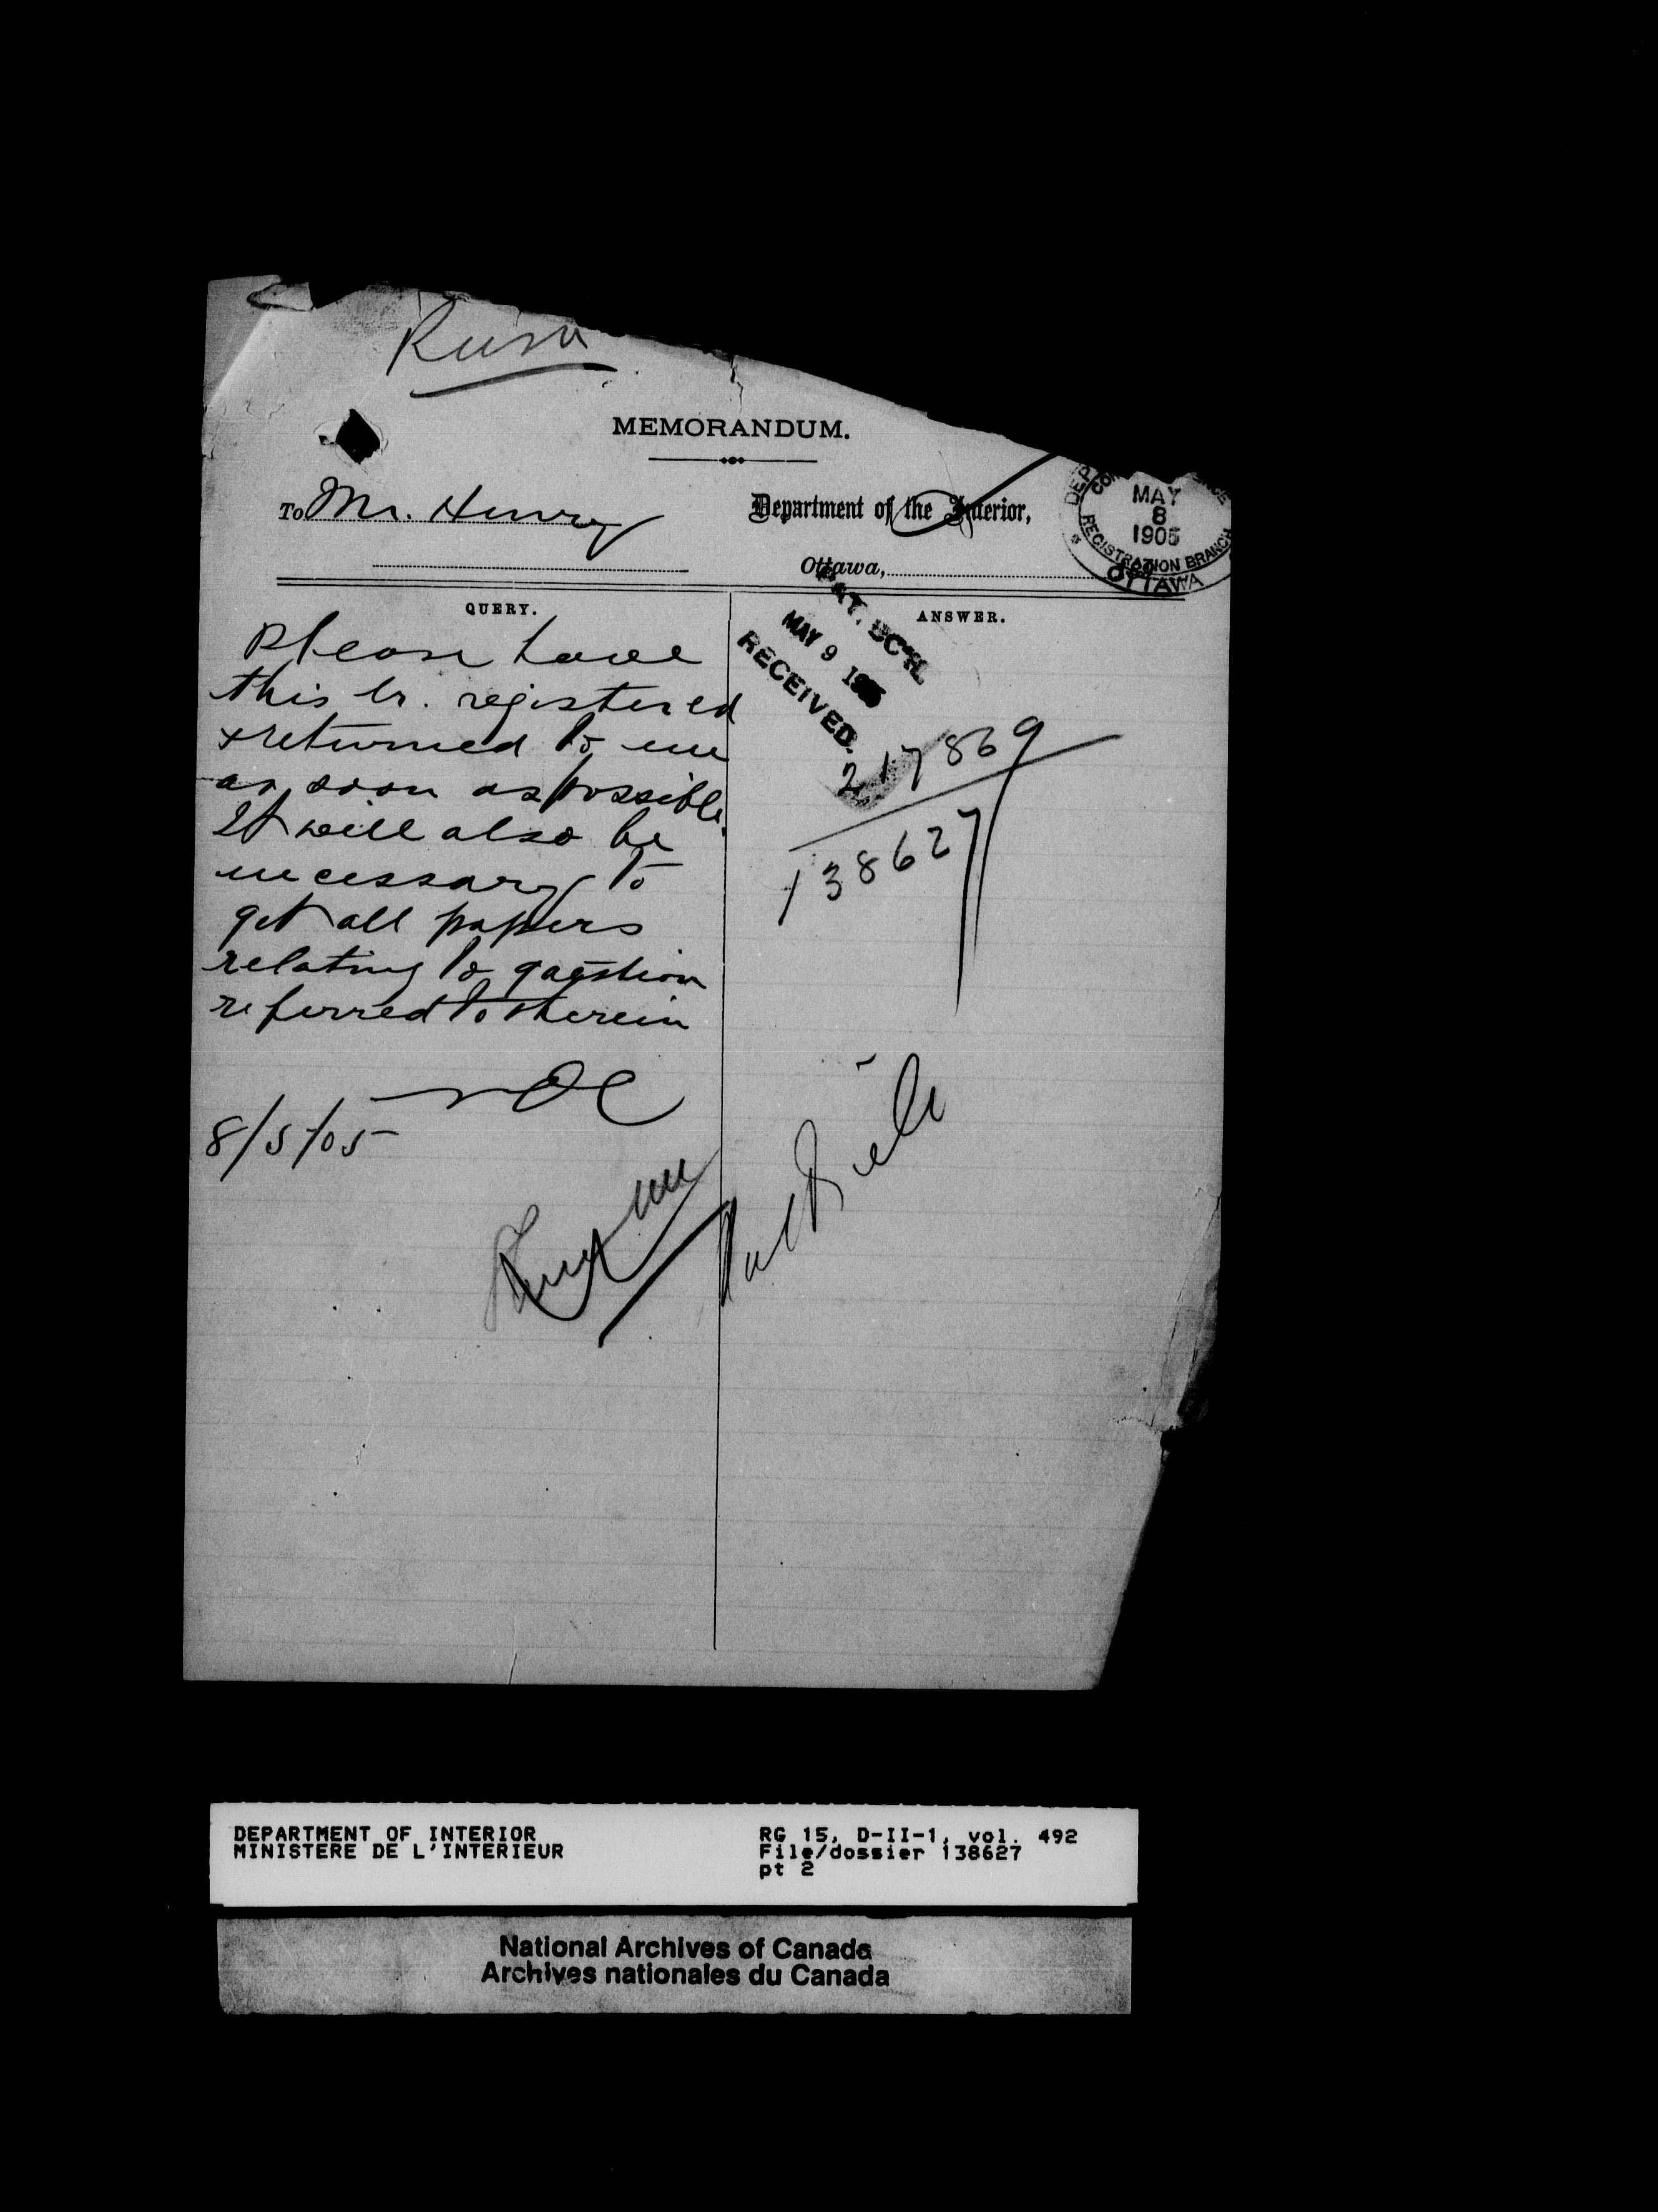 Rush
MEMORANDUM.
To Mr. Henry
Department of the Interior,
Ottawa,
MAY
8
1905
REGISTRATION BRANCH
OTTAWA
QUERY.
ANSWER.
Please have
this lr. registered
& returned to me
as soon as possible.
It will also be
necessary to
get all papers
relating to question
referred to therein
8/5/05
MAY 9
RECEIVED.
217869
138627
DEPARTMENT OF INTERIOR
MINISTERE DE L'INTERIEUR
RG 15, D-II-1, vol. 492
File/dossier 138627
pt 2
National Archives of Canada
Archives nationales du Canada